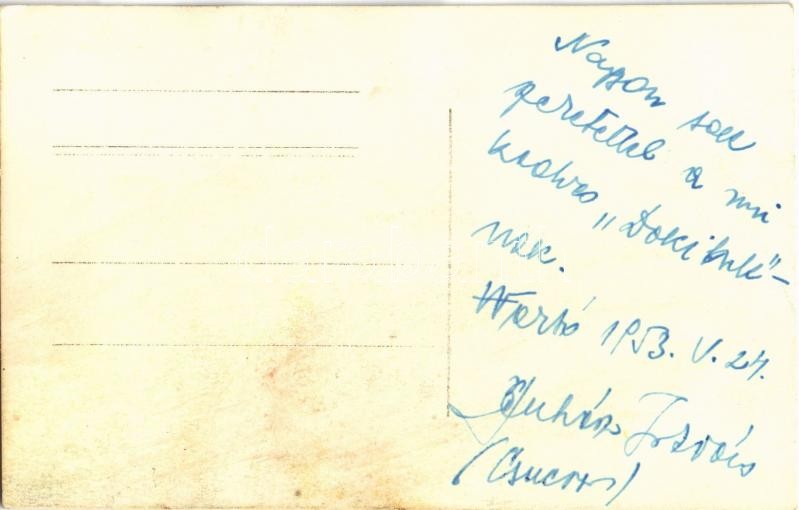 Nagyon sok
szeretettel a mi
kedves „Dokibák"-
nak.
1953. V. 24.
Juhász István